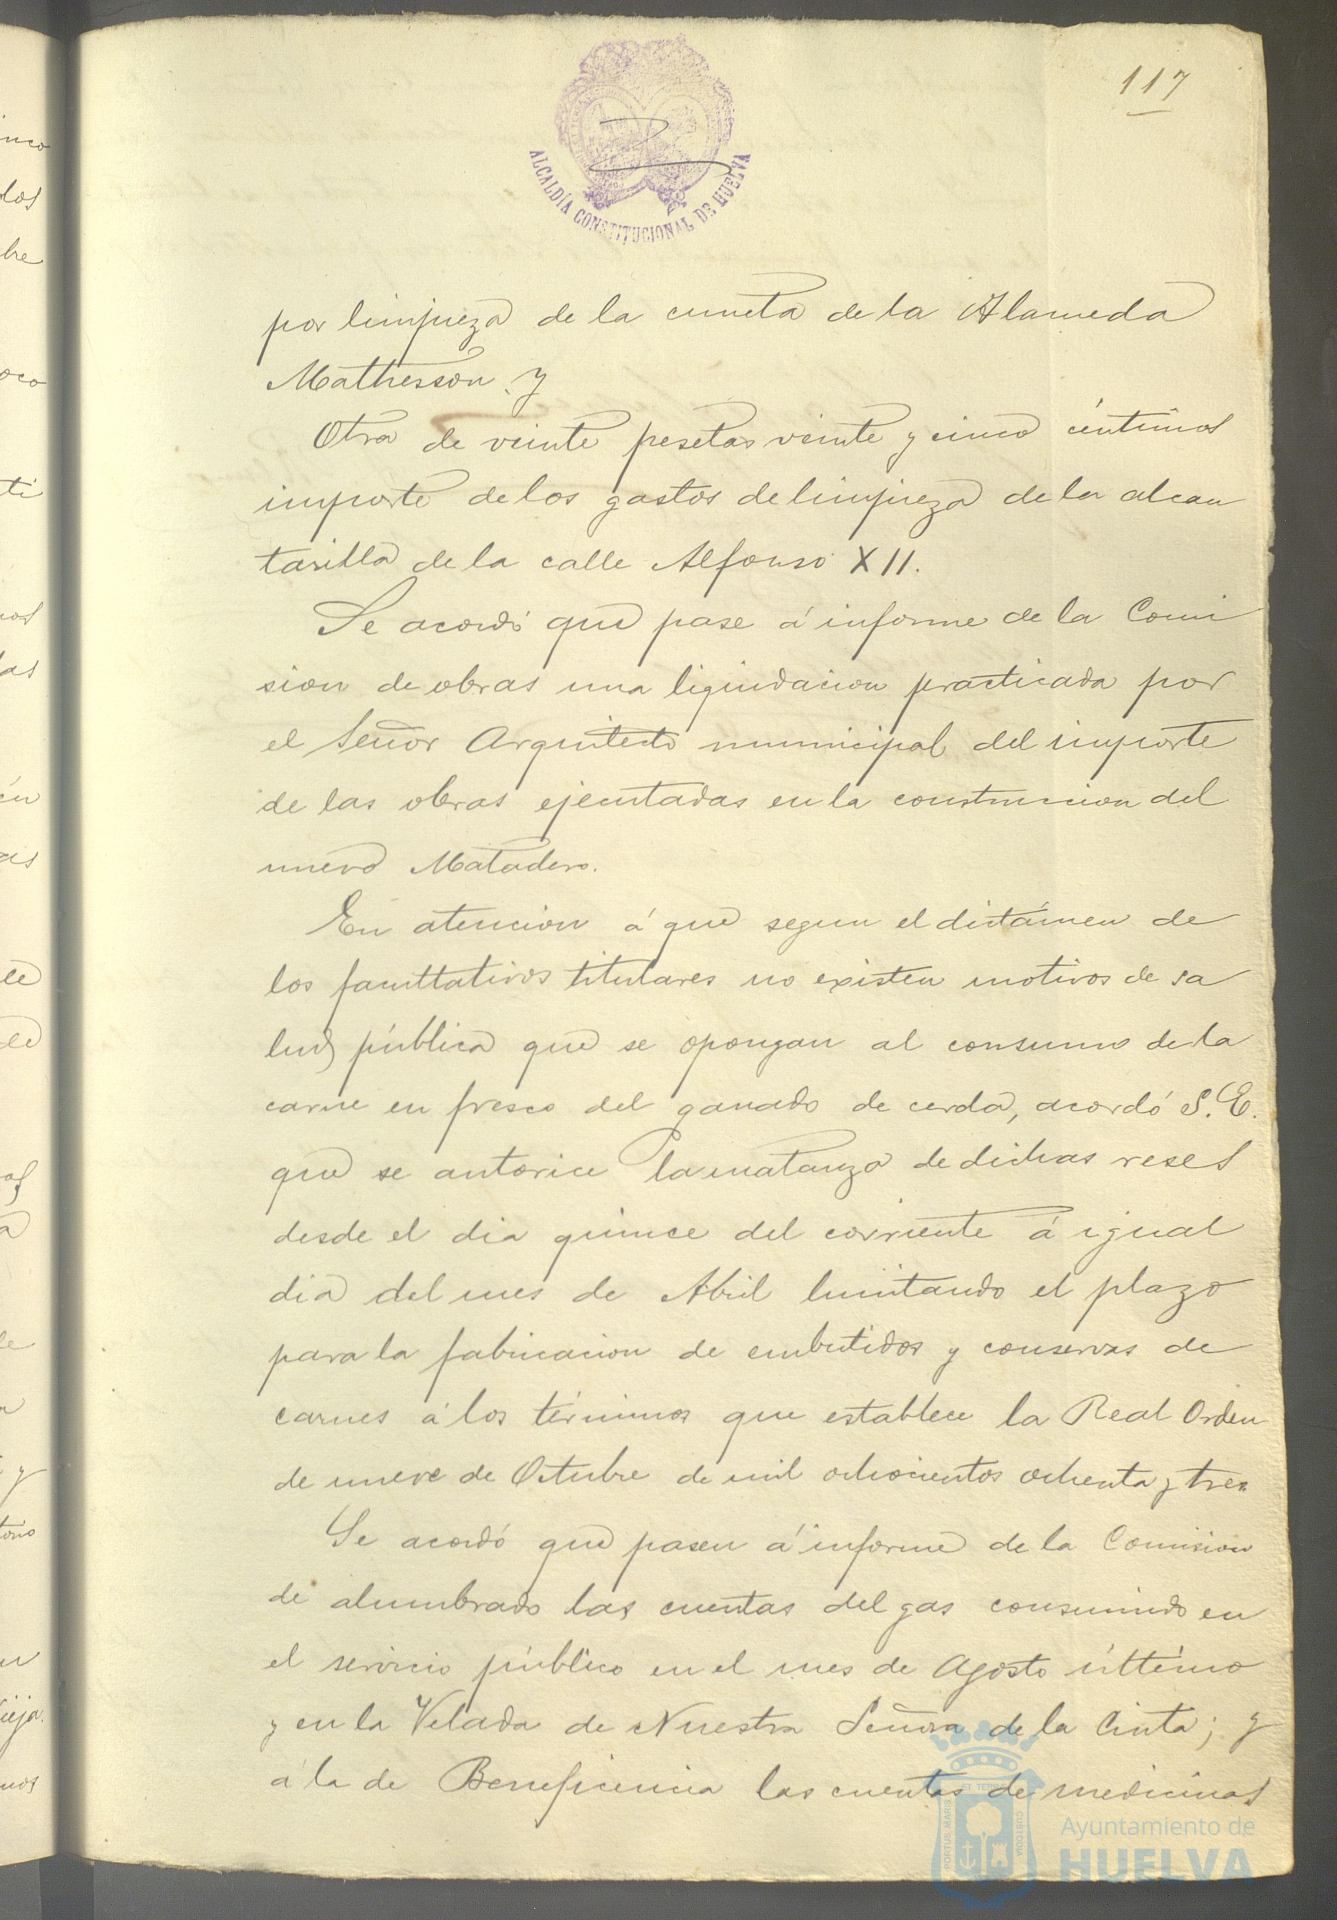 117
ALCALDÍA CONSTITUCIONAL DE HUELVA
por limpieza de la cuneta de la Alameda
Mathesson y
Otra de veinte pesetas veinte y cinco céntimos
importe de los gastos de limpieza de la alcan
tarilla de la calle Alfonso XII.
Se acordó que pase á informe de la Comi
sion de obras una liquidacion practicada por
el Señor Arquitecto municipal del importe
de las obras ejecutadas en la construccion del
nuevo Matadero.
En atencion á que segun el dictámen de
los facultativos titulares no existen motivos de sa
lud pública que se opongan al consumo de la
carne en fresco del ganado de cerda, acordó S.E.
que se autorice la matanza de dichas reses
desde el dia quince del corriente á igual
dia del mes de Abril limitando el plazo
para la fabricacion de embutidos y conservas de
carnes á los términos que establece la Real Orden
de nueve de Octubre de mil ochocientos ochenta y tres
Se acordó que pasen á informe de la Comision
de alumbrado las cuentas del gas consumido en
el servicio público en el mes de Agosto último
y en la Velada de Nuestra Señora de la Cinta; y
á la de Beneficencia las cuentas de medicinas
PORTUS MARIS ET TERRAE CUSTODIA
Ayuntamiento de
HUELVA